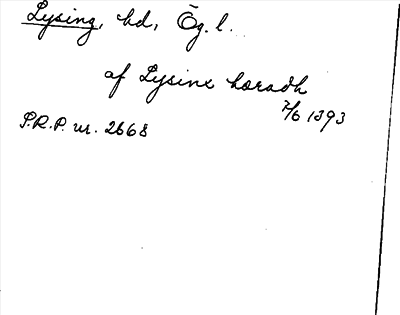 Lysing, hd, Ög. l.
af Lysinx hæradh
7/6 1393
S.R.P. nr. 2668